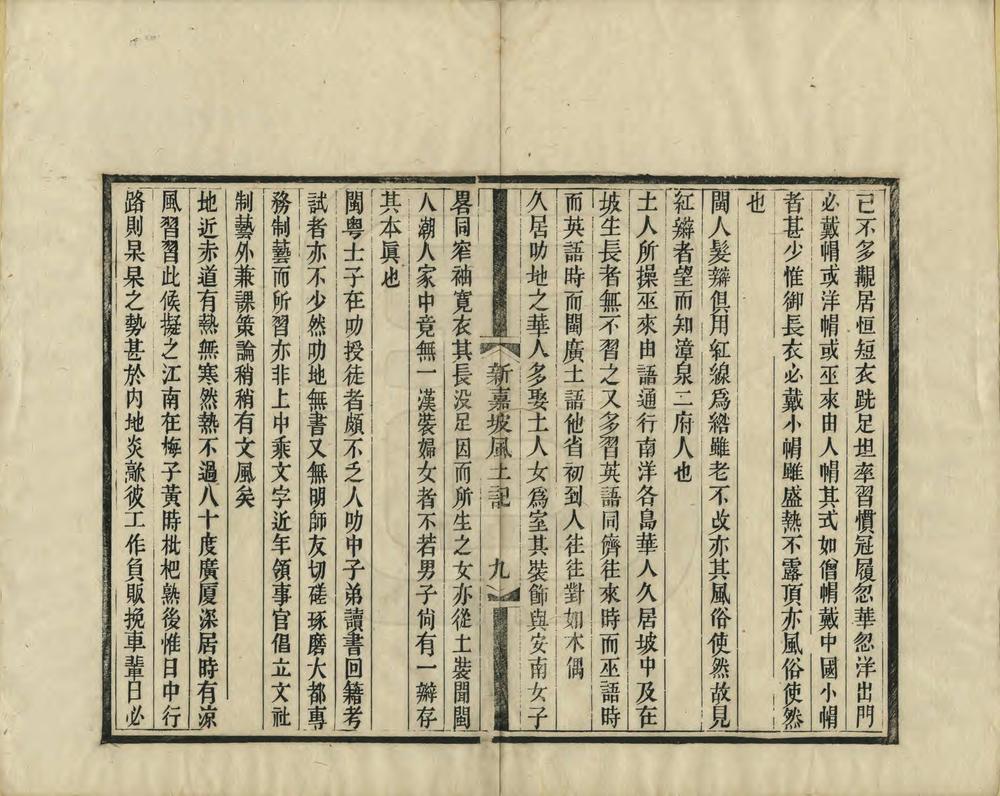 已不多覯居恒短衣跣足坦率習慣冠履忽華忽洋出門
必戴帽或洋帽或巫來由人帽其式如僧帽戴中國小帽
者甚少惟御長衣必戴小帽雖盛熱不露頂亦風俗使然
也
閩人髮辮俱用紅線爲綹雖老不改亦其風俗使然故見
紅辮者望而知漳泉二府人也
土人所操巫來由語通行南洋各島華人久居坡中及在
坡生長者無不習之又多習英語同儕往來時而巫語時
而英語時而閩廣土語他省初到人往往對如木偶
久居叻地之華人多娶土人女爲室其裝飾與安南女子
新嘉坡風土記 九
畧同窄袖寬衣其長沒足因而所生之女亦從土裝聞閩
人潮人家中竟無一漢裝婦女者不若男子尙有一辮存
其本眞也
閩粤士子在叻授徒者頗不乏人叻中子弟讀書回籍考
試者亦不少然叻地無書又無明師友切磋琢磨大都專
務制藝而所習亦非上中乘文字近年領事官倡立文社
制藝外兼課策論稍稍有文風矣
地近赤道有熱無寒然熱不過八十度廣厦深居時有凉
風習習此候擬之江南在梅子黃時枇杷熟後惟日中行
路則杲杲之勢甚於內地炎歊彼工作負販挽車輩日必